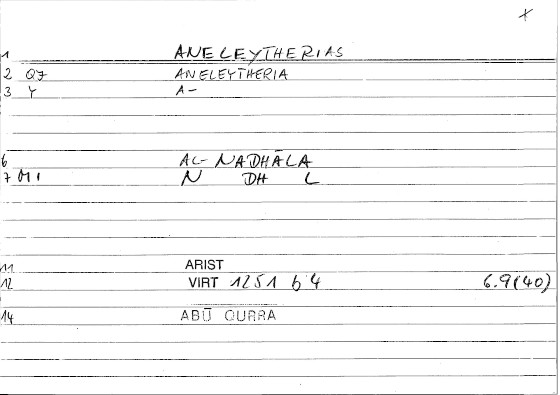 X
1 ANELEYTHERIAS
2 Q7 ANELEYTHERIA
3 Y A-
6 AL-NADHĀLA
7 MI N DH L
11 ARIST
12 VIRT 1251 b 4 6.9(40)
14 ABŪ QURRA